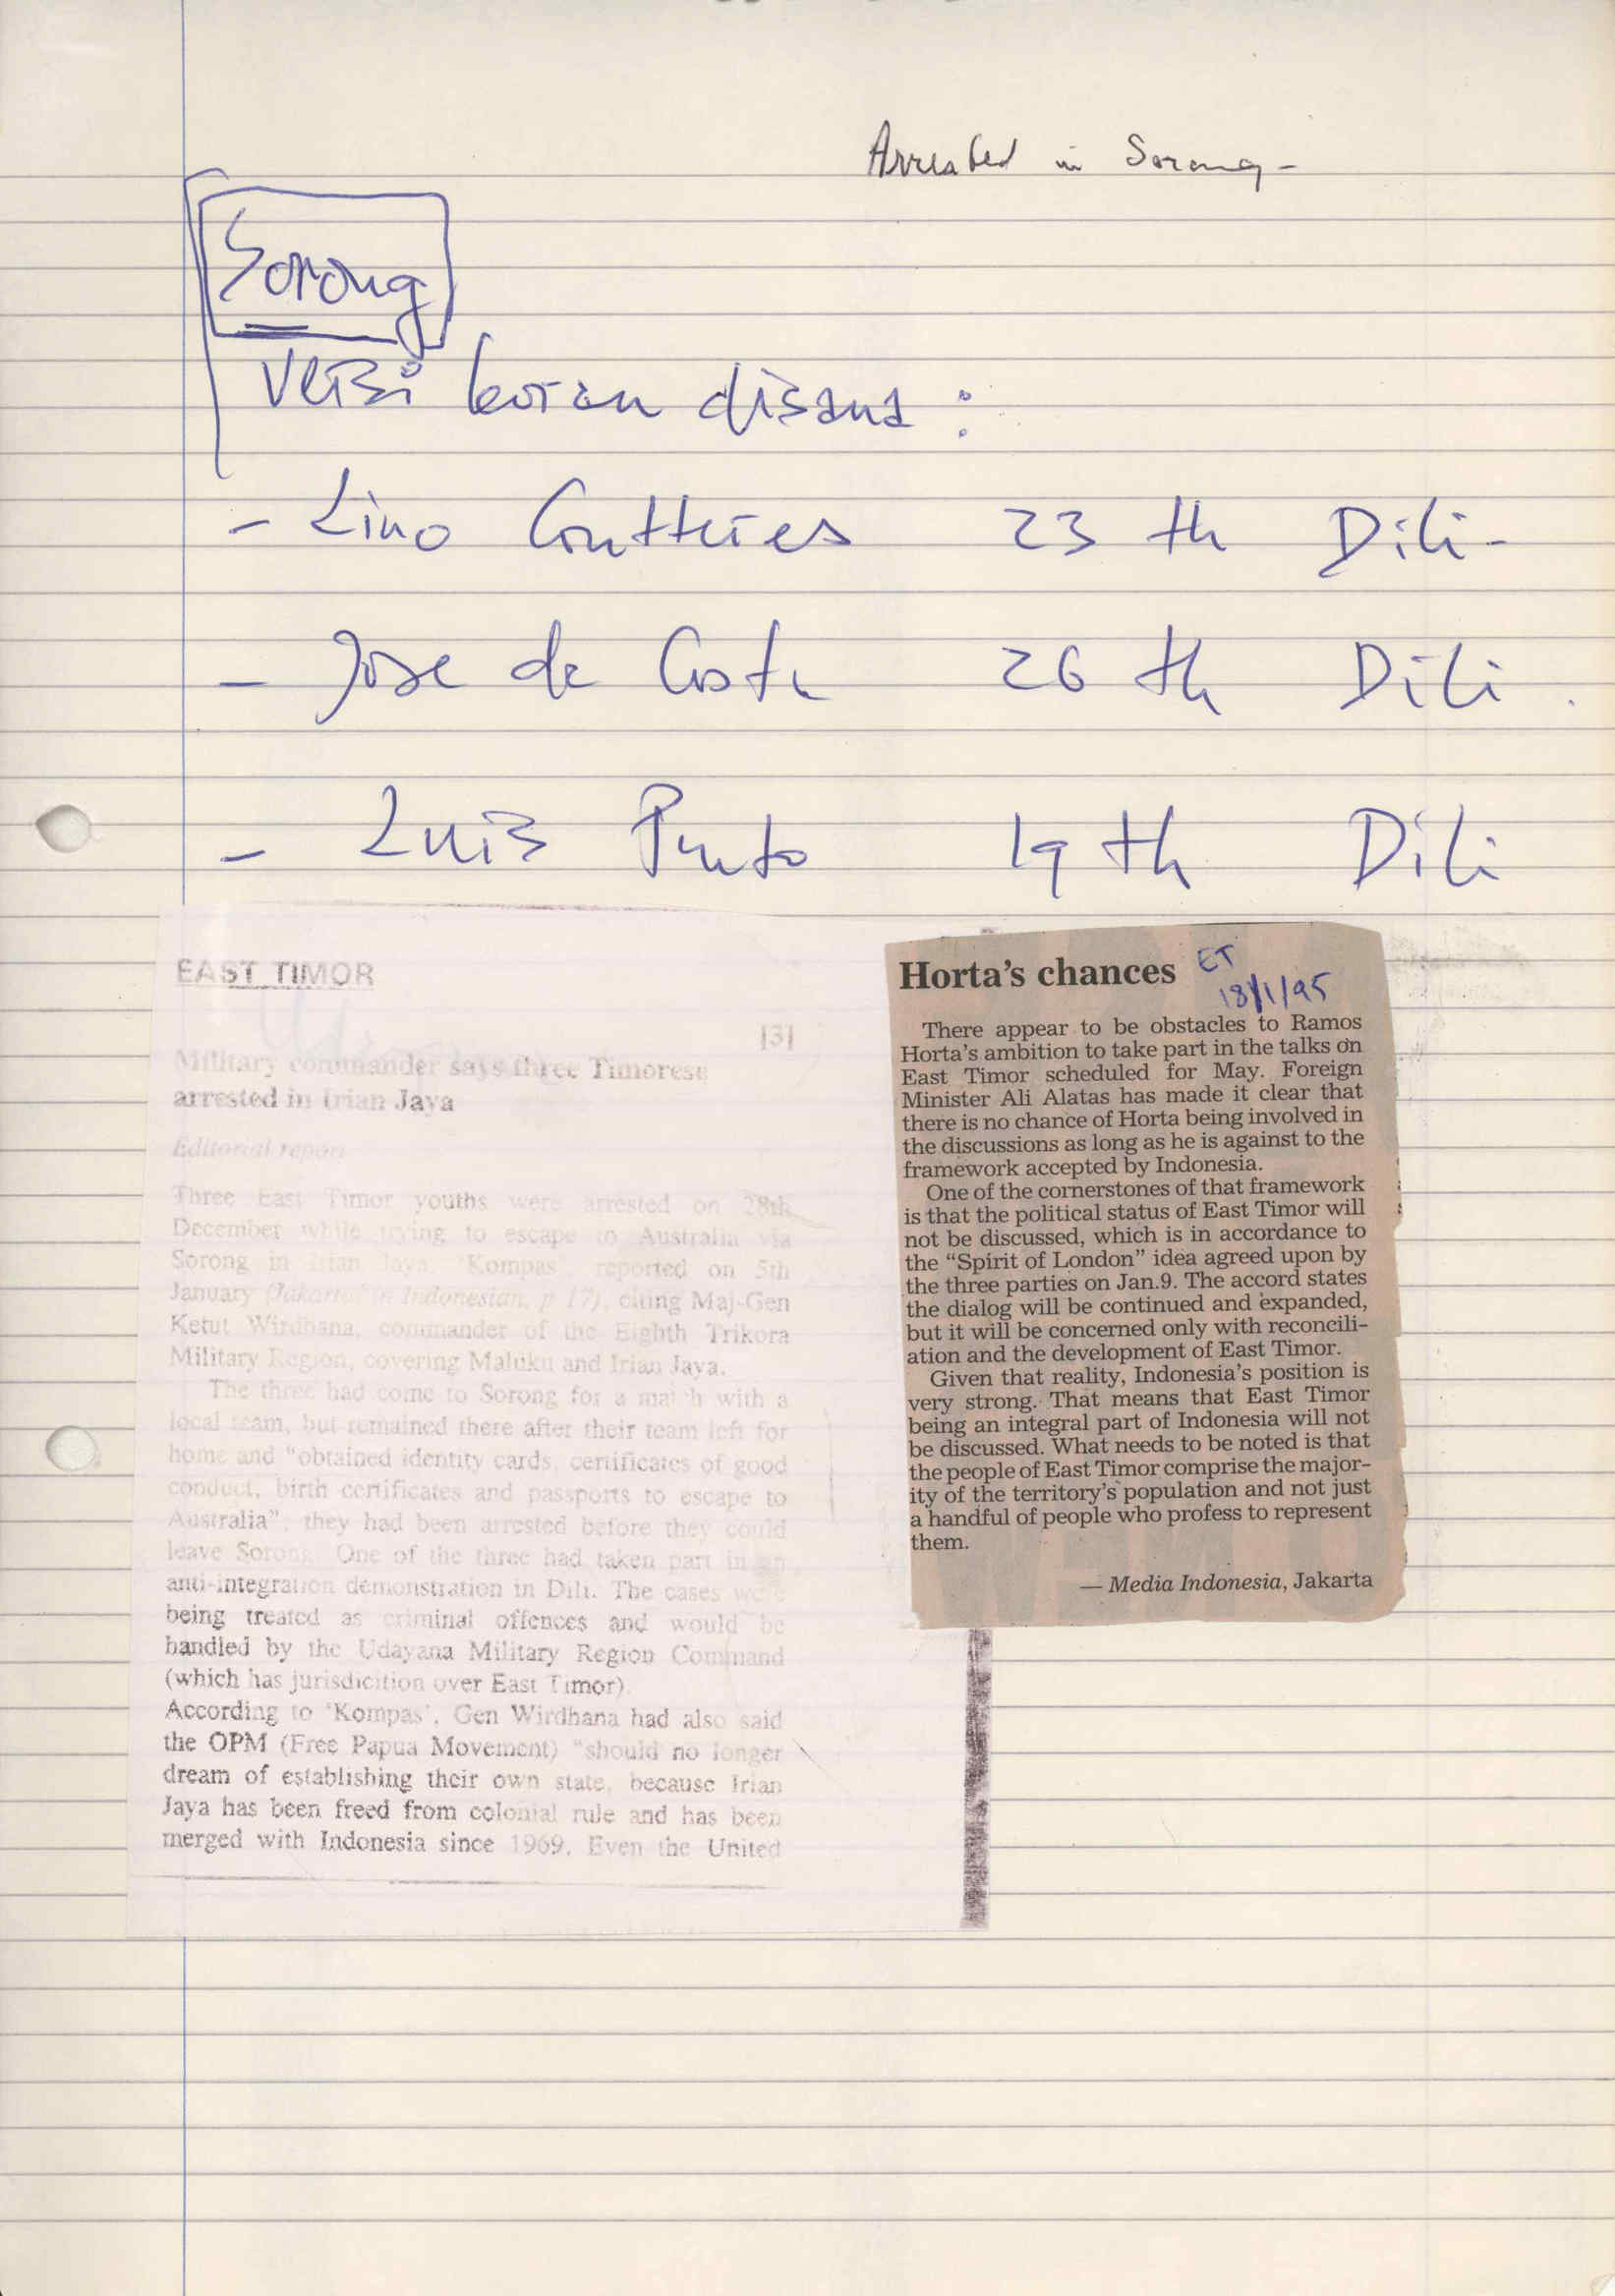 Arrested in Sorong -
Sorong
Versi koran disana :
- Lino Couttries 23 th Dili -
- Jose da Costa 26 th Dili .
- Luis Pinto 19 th Dili
EAST TIMOR
[3]
Military commander says three Timorese
arrested in Irian Jaya
Editorial report
Three East Timor youths were arrested on 28th
December while trying to escape to Australia via
Sorong in Irian Jaya, 'Kompas' reported on 5th
January (Jakarta, in Indonesian, p 17), citing Maj-Gen
Ketut Wirdhana, commander of the Eighth Trikora
Military Region, covering Maluku and Irian Jaya.
The three had come to Sorong for a match with a
local team, but remained there after their team left for
home and "obtained identity cards, certificates of good
conduct, birth certificates and passports to escape to
Australia"; they had been arrested before they could
leave Sorong. One of the three had taken part in an
anti-integration demonstration in Dili. The cases were
being treated as criminal offences and would be
handled by the Udayana Military Region Command
(which has jurisdicition over East Timor).
According to 'Kompas', Gen Wirdhana had also said
the OPM (Free Papua Movement) "should no longer
dream of establishing their own state, because Irian
Jaya has been freed from colonial rule and has been
merged with Indonesia since 1969. Even the United
Horta's chances
ET
18/1/95
There appear to be obstacles to Ramos
Horta's ambition to take part in the talks on
East Timor scheduled for May. Foreign
Minister Ali Alatas has made it clear that
there is no chance of Horta being involved in
the discussions as long as he is against to the
framework accepted by Indonesia.
One of the cornerstones of that framework
is that the political status of East Timor will
not be discussed, which is in accordance to
the "Spirit of London" idea agreed upon by
the three parties on Jan.9. The accord states
the dialog will be continued and expanded,
but it will be concerned only with reconcili-
ation and the development of East Timor.
Given that reality, Indonesia's position is
very strong. That means that East Timor
being an integral part of Indonesia will not
be discussed. What needs to be noted is that
the people of East Timor comprise the major-
ity of the territory's population and not just
a handful of people who profess to represent
them.
— Media Indonesia, Jakarta